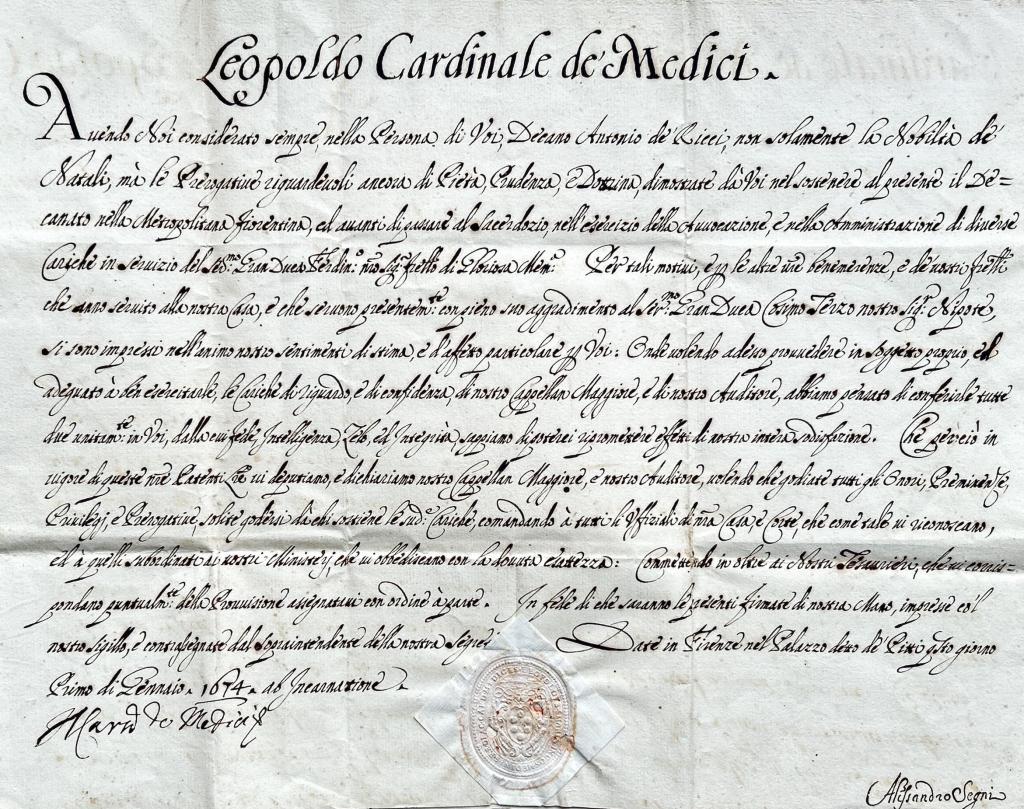 Leopoldo Cardinale de Medici.
Avendo Noi considerato sempre, nella Persona di Voi, Decano Antonio de' Ricci, non solamente la Nobiltà de'
Natali, mà le Prerogative riguardevoli ancora di Pietà, Prudenza, e Dottrina, dimostrate da Voi nel sostenere al presente il De=
canato nella Metropolitana fiorentina, ed avanti di passare al Sacerdozio, nell'esercizio della Avvocazione, e nella Amministrazione di diverse
Cariche in servizio del Gran Duca Ferdin.º nro Sig.re frello di Gloriosa Mem.ª Per tali motivi, e p le altre vre benemerenze, e de vostri frelli
che anno servito alla nostra Casa, e che servono presentem.te con pieno suo aggradimento al Ser.mo Gran Duca Cosimo Terzo nostro Sig.r Nipote,
si sono impressi nell'animo nostro sentimenti di stima, e d'affetto particolare p Voi: Onde volendo adesso provvedere in soggetto proprio, ed
adeguato à ben esercitarle, le Cariche di riguardo, e di confidenza, di nostro Cappellan Maggiore, e di nostro Auditore, abbiamo pensato di conferirle tutte
due unitam.te in Voi, dalla cui fede, Intelligenza, Zelo, ed Integrità, sappiamo di poterci ripromettere effetti di nostra intera sodisfazione. Che perciò in
vigore di queste nre Patenti vi deputiamo, e dichiariamo nostro Cappellan Maggiore, e nostro Auditore, volendo che godiate tutti gli Onori, Preminenze,
Privilegj, e Prerogative, solite godersi da chi sostiene le sud.e Cariche, comandando à tutti li Uffiziali di nra Casa, e Corte, che come tale vi riconoscano,
ed à quelli subordinati ai vostri Ministerj, che vi obbediscano con la dovuta esattezza: Commettendo in oltre ai Nostri Tesaurieri, che vi corris=
pondano puntualm.te della Provvisione assegnatavi con ordine à parte. In fede di che saranno le presenti firmate di nostra Mano, impresse col
nostro sigillo, e contrassegnate dal Sopraintendente della nostra Segret Date in Firenze nel Palazzo detto de' Pitti qsto giorno
Primo di Gennaio. 1674. ab Incarnatione.
Il Card de Medici
Alessandro Segni